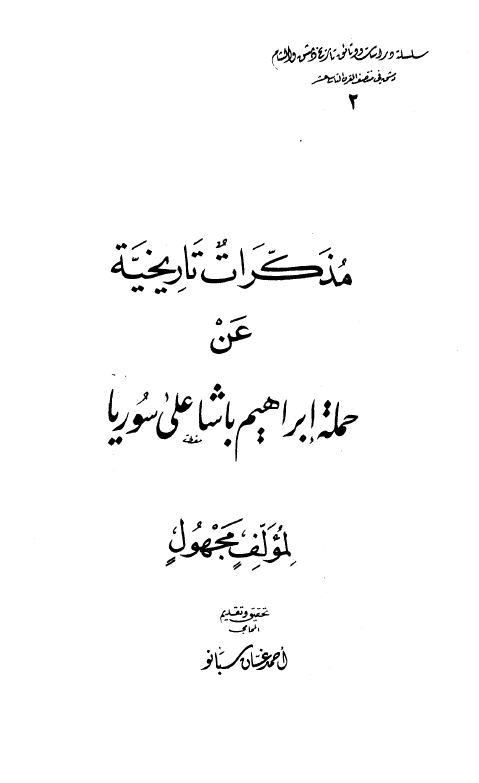 سلسلة دراسات ووثائق تاريخ دمشق والشام
دمشق في منتصف القرن التاسع عشر
٢
مُذَكِّرَاتٌ تَارِيخِيَّة
عَنْ
حملة إبراهيم باشا على سُوريا
لِمُؤَلِّفٍ مَجْهُولٍ
تحقيق وتقديم
المحامي
أحمد غسّان سبَانو